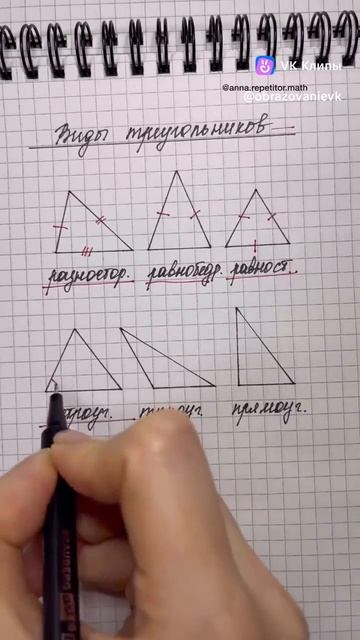 VK Клипы
@anna.repetitor.math
@obrazovanievk
Виды треугольников
разностор. равнобедр. равност.
прямоуг.